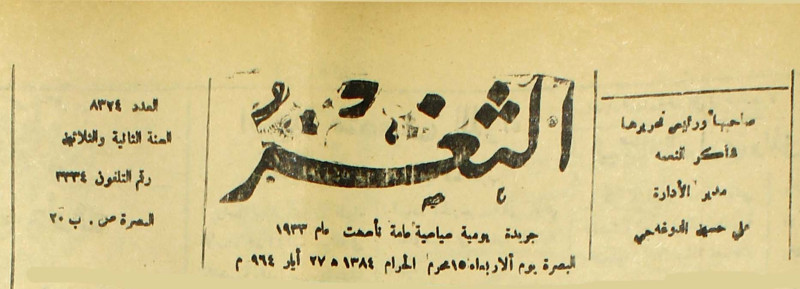 صاحبها ورئيس تحريرها
شاكر النعمه
مدير الأدارة
علي حسين الدوغه جي
الثغر
جريدة يومية سياسية عامة تأسست عام ١٩٣٣
البصرة يوم ألاربعاء ١٥ محرم الحرام ١٣٨٤ ه ٢٧ أيار ٩٦٤ م
العدد ٨٣٧٤
السنة الثانية والثلاثون
رقم التلفون ٣٣٣٤
البصرة ص . ب ٢٠